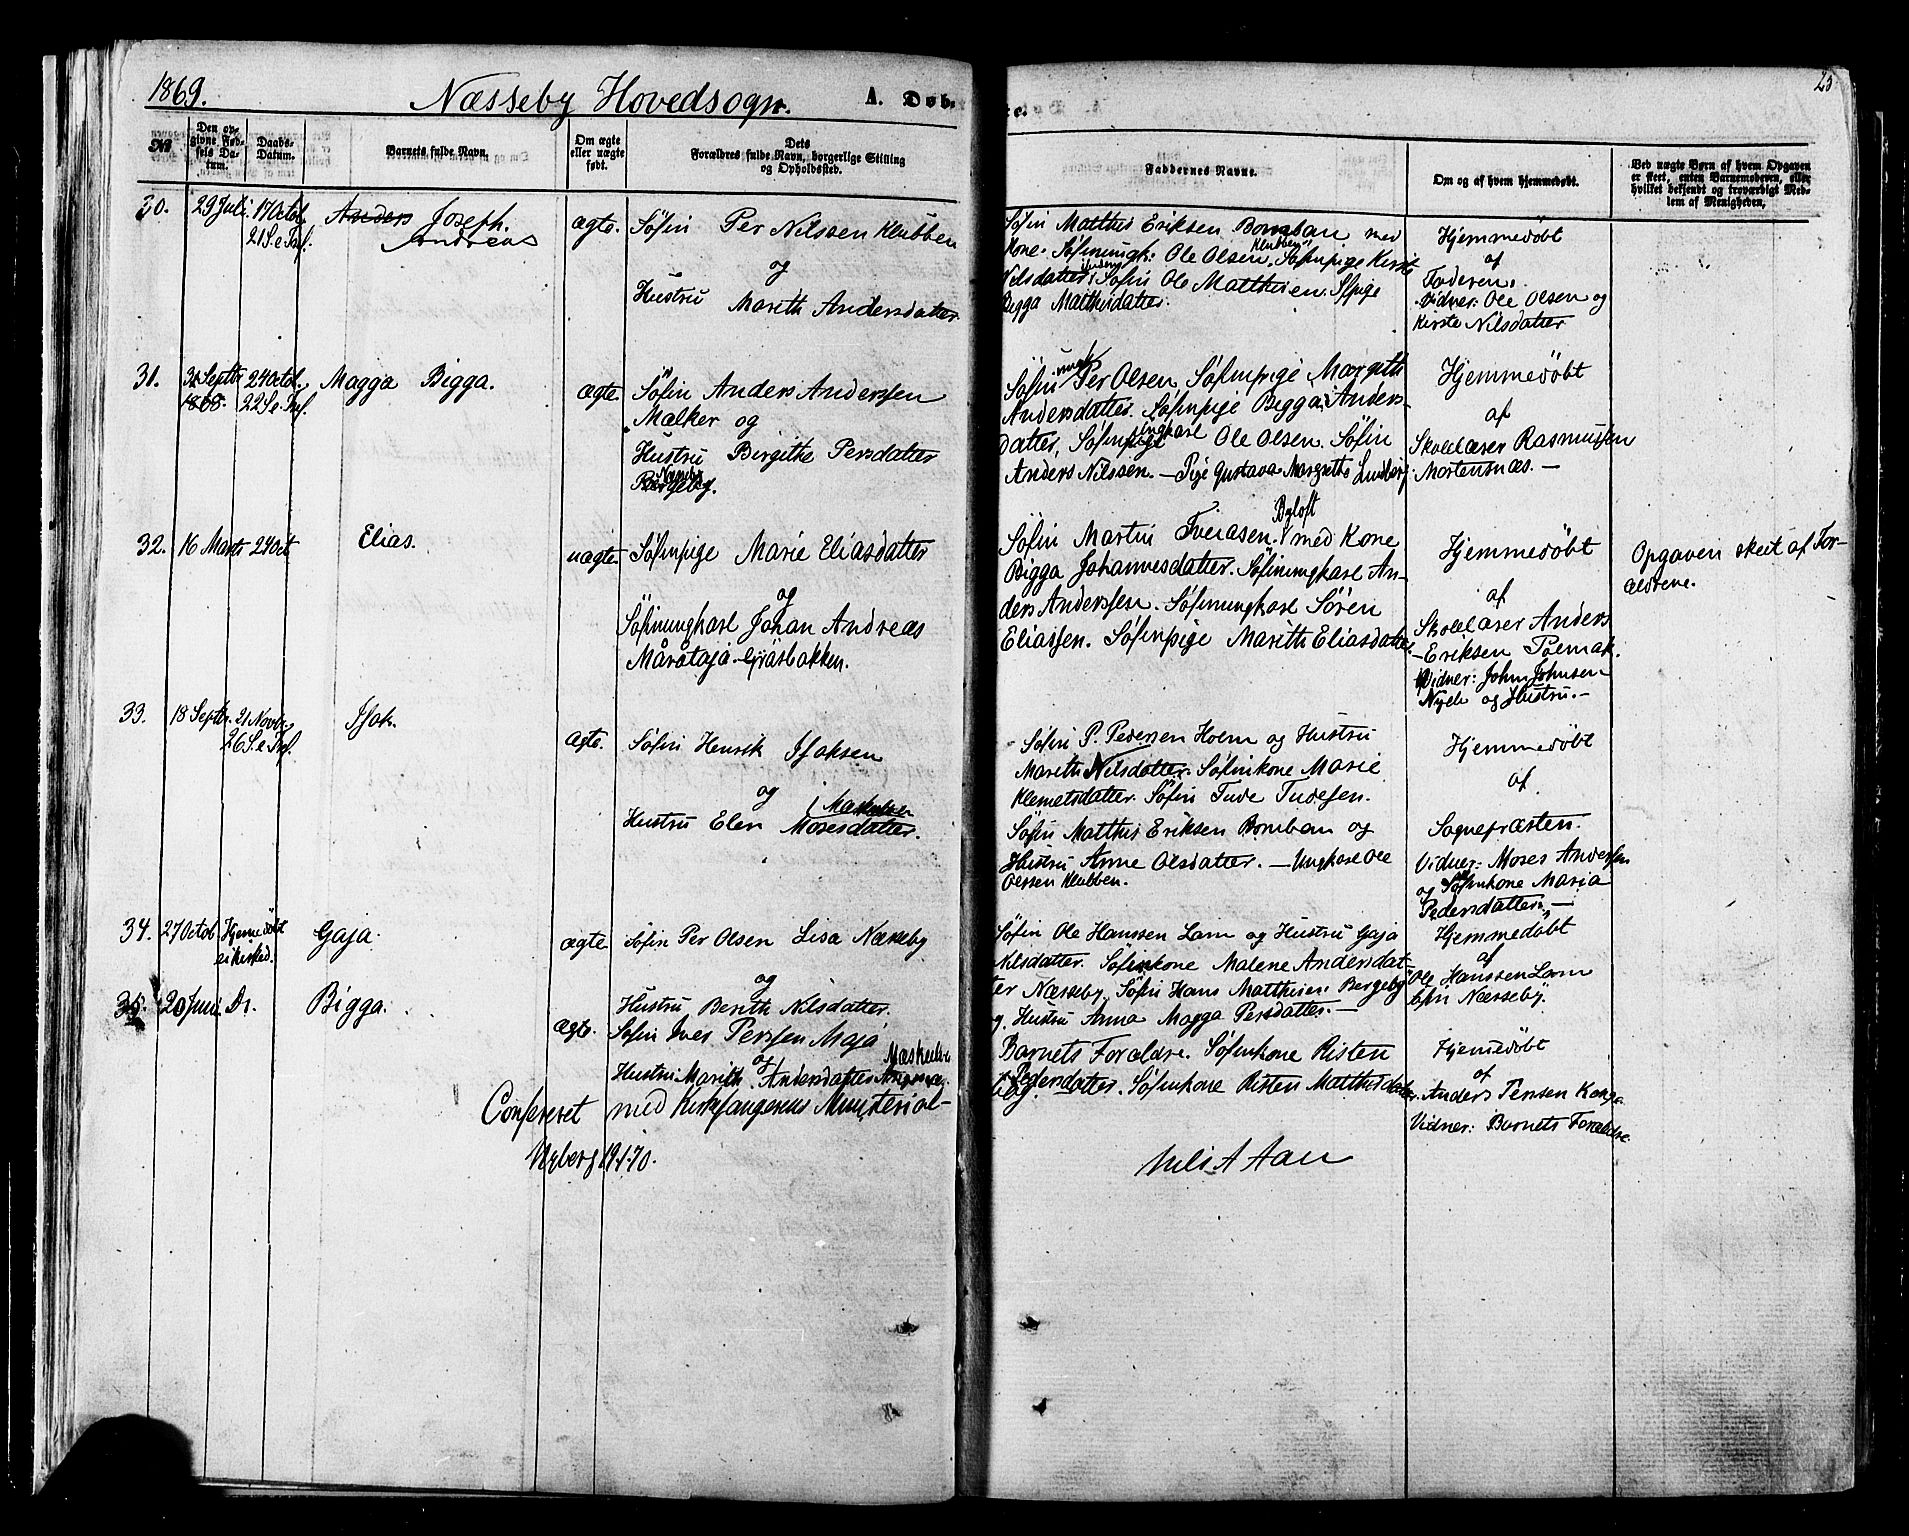 1869.
Næsseby Hovedsogn.
A. Døb-
te.
25
No
Den op-
givne Fød-
sels Da-
tum.
Daabs-
Datum.
Barnets fulde Navn.
Om ægte
eller uægte
født.
Dets
Forældres fulde Navn, borgerlige Stilling
og Opholdssted.
Faddernes Navne.
Om og af hvem hjemmedøbt.
Ved uægte Børn af hvem Opgaven
er skeet, enten Barnemoderen, eller
hvilket bekjendt og troværdigt Med-
lem af Menigheden.
30.
29 Juli
17 Octob.
21 S. e. Tref.
Anders Joseph.
Andreas
ægte.
Søfin Per Nilssen Klubben
og
Hustru Marith Andersdatter.
Søfin Matthis Eriksen Bomban med
Kone. Søfinungk: Ole Olsen Klubben, Søfinpige Kirste
Nilsdatter, Søfin Ole Matthisen. Sfpige
Bigga Matthisdatter.
Hjemmedøbt
af
Faderen.
Vidner: Ole Olsen og
Kirste Nilsdatter
31.
Septbr
1868.
24 Octob.
22 S. e. Tref.
Magga Bigga.
ægte.
Søfin Anders Anderssen
Mælker og
Hustru Birgithe Persdatter
Søfin Per Olsen Søfinpige Margith
Andersdatter. Søfinpige Bigga Anders-
datter, Søfinungkarl Ole Olsen. Søfin
Anders Nilssen. — Pige Gustava Margrethe Lundberg
Hjemmedøbt
af
Skolelærer Rasmussen
Mortensnæs. —
32.
16 Marts
24 Oct
Elias.
uægte.
Søfinpige Marie Eliasdatter
og
Søfinungkarl Johan Andreas
Måratajå Græsbakken.
Søfin Martin Byloft med Kone
Bigga Johannesdatter. Søfinungkarl An-
ders Anderssen. Søfinungkarl Sören
Eliassen. Søfinpige Marith Eliasdatter.
Hjemmedøbt
af
Skolelærer Anders
Eriksen
Vidner: John Johnsen
og Hustru. —
Opgaven skeet af For-
ældrene.
33.
18 Septbr.
21 Novbr.
26 S. e. Tref.
Isak.
ægte.
Søfin Henrik Isaksen
og
Hustru Elen Mosesdatter.
Søfin P. Pedersen Holm og Hustru
Marith Nilsdatter. Søfinkone Marie
Klemetsdatter. Søfin Tude Tudesen.
Søfin Matthis Eriksen Bomban og
Hustru Anne Olsdatter. — Ungkarl Ole
Olssen Klubben.
Hjemmedøbt
af
Sognepræsten.
Vidner: Moses Anderssen
og Søfinkone Maria
Pedersdatter. —
34.
27 Octob.
Hjemmedöbt
ei kirked.
Gaja.
ægte
Søfin Per Olsen Lisa Næsseby
og
Hustru Berith Nilsdatter.
Søfin Ole Hanssen Larm og Hustru Gaja
Nilsdatter. Søfinkone Malene Andersdat-
ter Næsseby. Søfin Hans Matthisen Bergeby
og Hustru Anna Magga Persdatter. —
Hjemmedøbt
af
Ole Hanssen Larm
Næsseby.
35.
20 Juni.
Do.
Bigga.
ægte.
Søfin Iver Perssen Majå
og
Hustru Marith Andersdatter Mæskelven
Barnets Forældre. Søfinkone Risten
Pedersdatter. Søfinkone Risten Matthisdatter.
Hjemmedøbt
af
Anders Persen
Vidner: Barnets Forældre.
Confereret med Kirkesangerens Ministerial-
Nyborg 19.1.70.
Nils A Aan